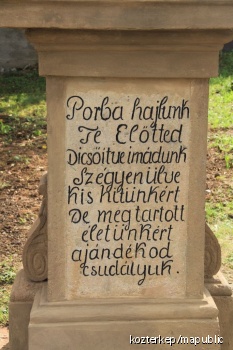 Porba hajlunk
Te Előtted
Dicsőitve imádunk
Szégyenülve
kis hitünkért
De megtartott
életünkért
ajándékod
csudáljuk.
kozterkep/mapublic